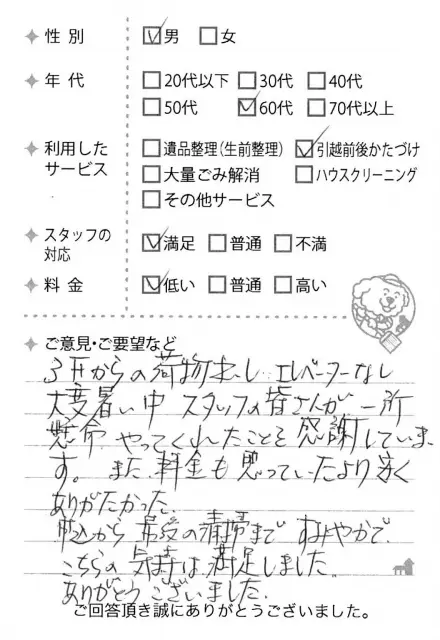 性別 ☑男 □女
年代 □20代以下 □30代 □40代
□50代 ☑60代 □70代以上
利用したサービス □遺品整理(生前整理) ☑引越前後かたづけ
□大量ごみ解消 □ハウスクリーニング
□その他サービス
スタッフの対応 ☑満足 □普通 □不満
料金 ☑低い □普通 □高い
ご意見・ご要望など
3Fからの荷物出し エレベーターなし
大変暑い中 スタッフの皆さんが一所
懸命、やってくれたことを感謝していま
す。また、料金も思っていたより安く
ありがたかった。
申込から 最後の清掃まで すみやかで
こちらの気持は満足しました。
ありがとうございました。
ご回答頂き誠にありがとうございました。